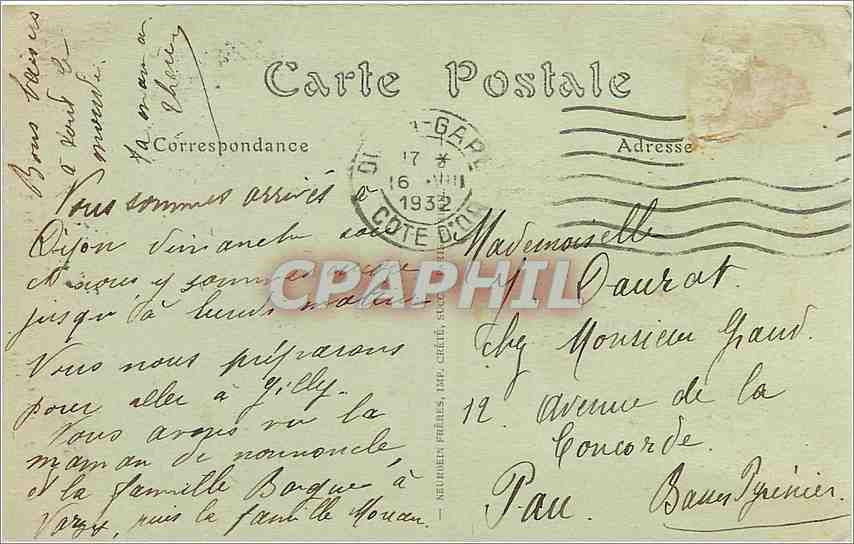 Carte Postale
Correspondance
Adresse
GARE
17 *
16 VIII
1932
COTE D'OR
Bons baisers
à vous 2
ta maman
Nous sommes arrivés à
Dijon dimanche soir
et nous y sommes
jusqu'à lundi matin
Nous nous préparons
pour aller à Gilly.
Nous avons vu la
maman de nounoucle,
et la famille Bogué à
puis la famille Moreau.
Mademoiselle
Y. Daurat.
chez Monsieur Graud.
12 avenue de la
Concorde.
Pau. Basses Pyrénées.
NEURDEIN FRÈRES, IMP. CRÉTÉ, SUCC
CPAPHIL